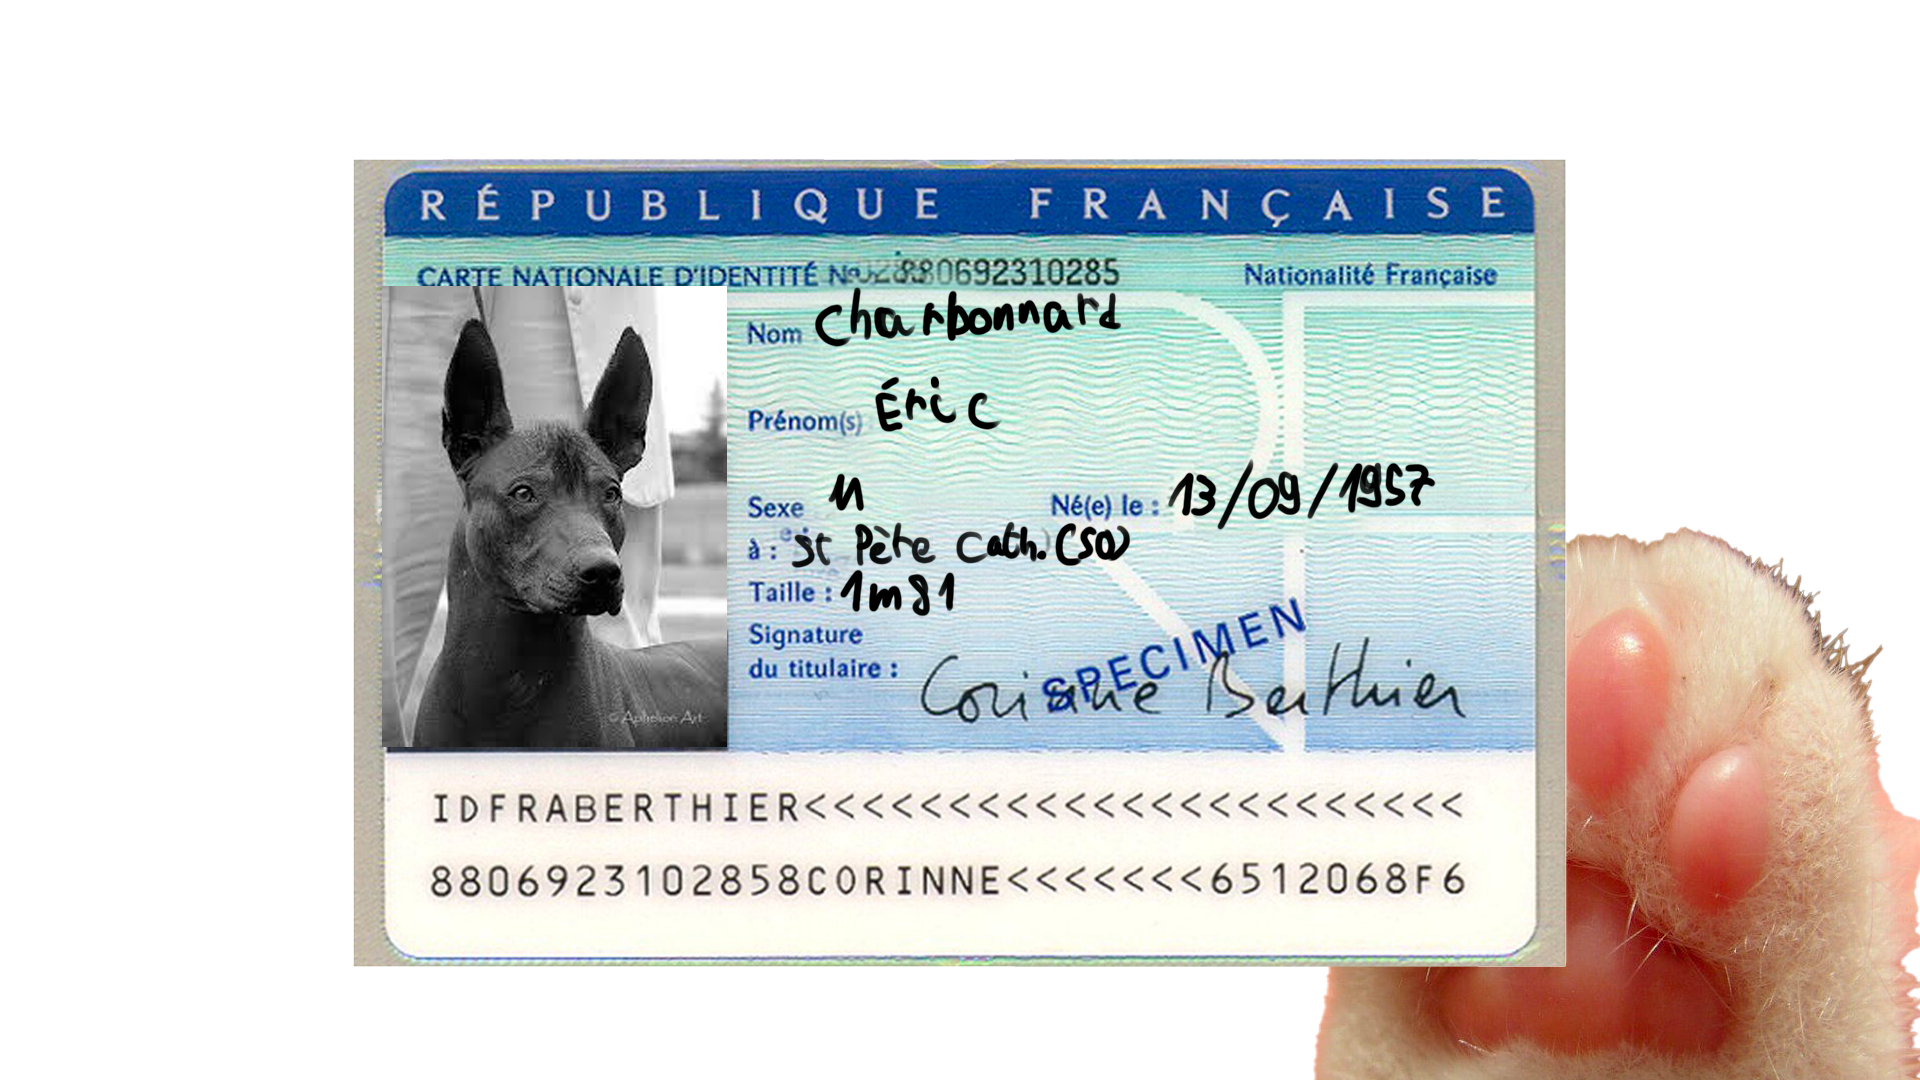 RÉPUBLIQUE FRANÇAISE
CARTE NATIONALE D'IDENTITÉ Nº 880692310285 Nationalité Française
Nom Charbonnard
Prénom(s) Éric
Sexe M Né(e) le : 13/09/1957
à : St Père Cath. (50)
Taille : 1m81
Signature
du titulaire : Corinne Berthier
SPECIMEN
© Aphelion Art
IDFRABERTHIER<<<<<<<<<<<<<<<<<<<<<<<
8806923102858CORINNE<<<<<<<6512068F6